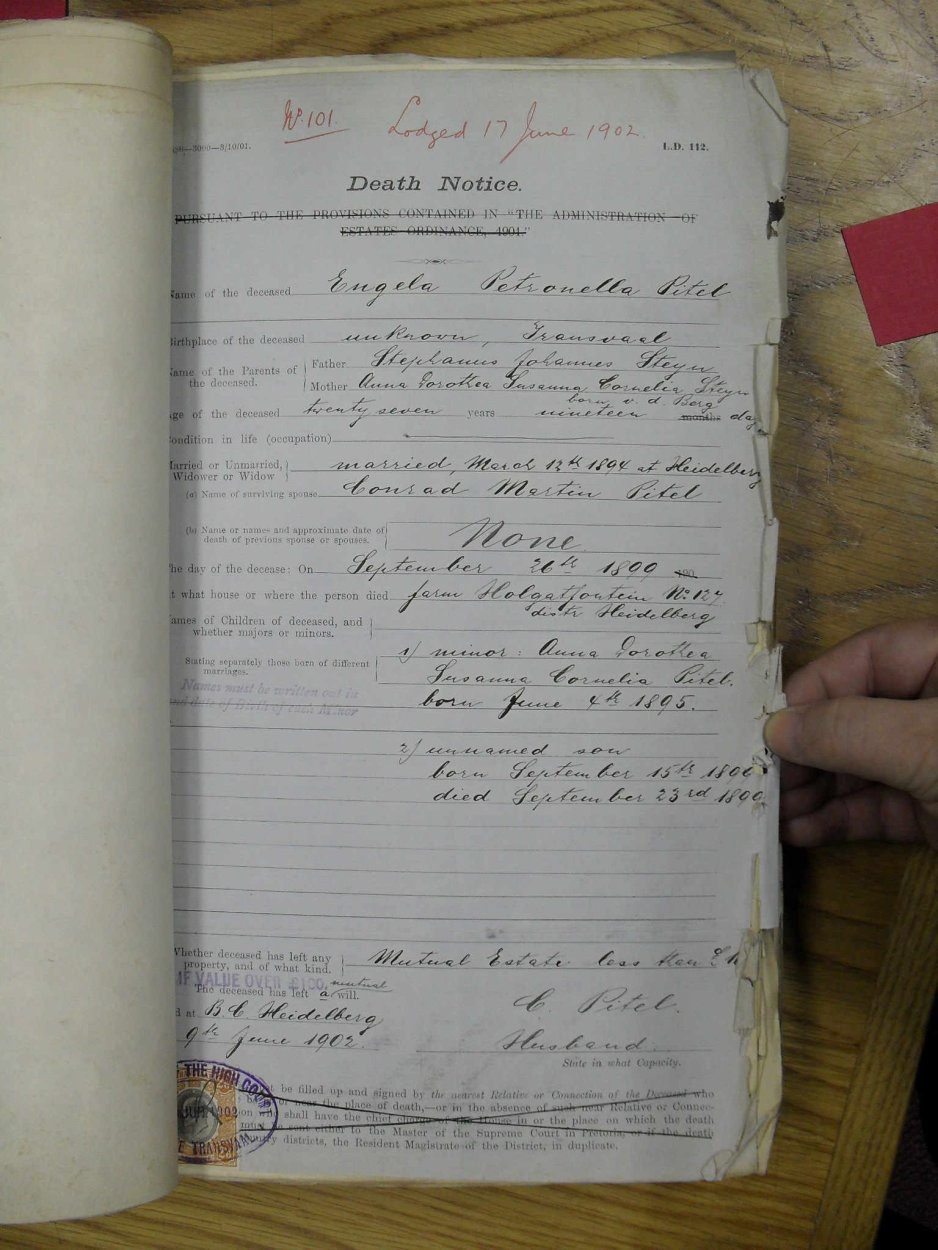 No. 101. Lodged 17 June 1902.
—3000—8/10/01. L.D. 112.
Death Notice.
PURSUANT TO THE PROVISIONS CONTAINED IN "THE ADMINISTRATION OF
ESTATES ORDINANCE, 1901."
Name of the deceased Engela Petronella Pitel
Birthplace of the deceased unknown, Transvaal
Name of the Parents of the deceased. Father Stephanus Johannes Steyn
Mother Anna Dorothea Susanna Cornelia Steyn
born v. d. Berg
Age of the deceased twenty seven years nineteen months day
Condition in life (occupation)
Married or Unmarried, Widower or Widow married, March 12th 1894 at Heidelberg
(a) Name of surviving spouse Conrad Martin Pitel
(b) Name or names and approximate date of
death of previous spouse or spouses. None
The day of the decease: On September 26th 1899 190
At what house or where the person died farm Holgatfontein No 127
distr Heidelberg
Names of Children of deceased, and
whether majors or minors.
Stating separately those born of different
marriages. 1) minor: Anna Dorothea
Susanna Cornelia Pitel.
Names must be written out in
and date of Birth of each Minor
born June 4th 1895.
2) unnamed son
born September 15th 1899
died September 23rd 1899
Whether deceased has left any
property, and of what kind. Mutual Estate less than £
IF VALUE OVER £100,
The deceased has left a mutual will.
at B C Heidelberg C. Pitel.
9th June 1902. Husband.
State in what Capacity.
THE HIGH COUR
1902
TRANSVAAL
be filled up and signed by the nearest Relative or Connection of the Deceased who
or near the place of death,—or in the absence of such near Relative or Connec-
shall have the chief charge of the House in or the place on which the death
must be sent either to the Master of the Supreme Court in Pretoria, or if the death
districts, the Resident Magistrate of the District, in duplicate.